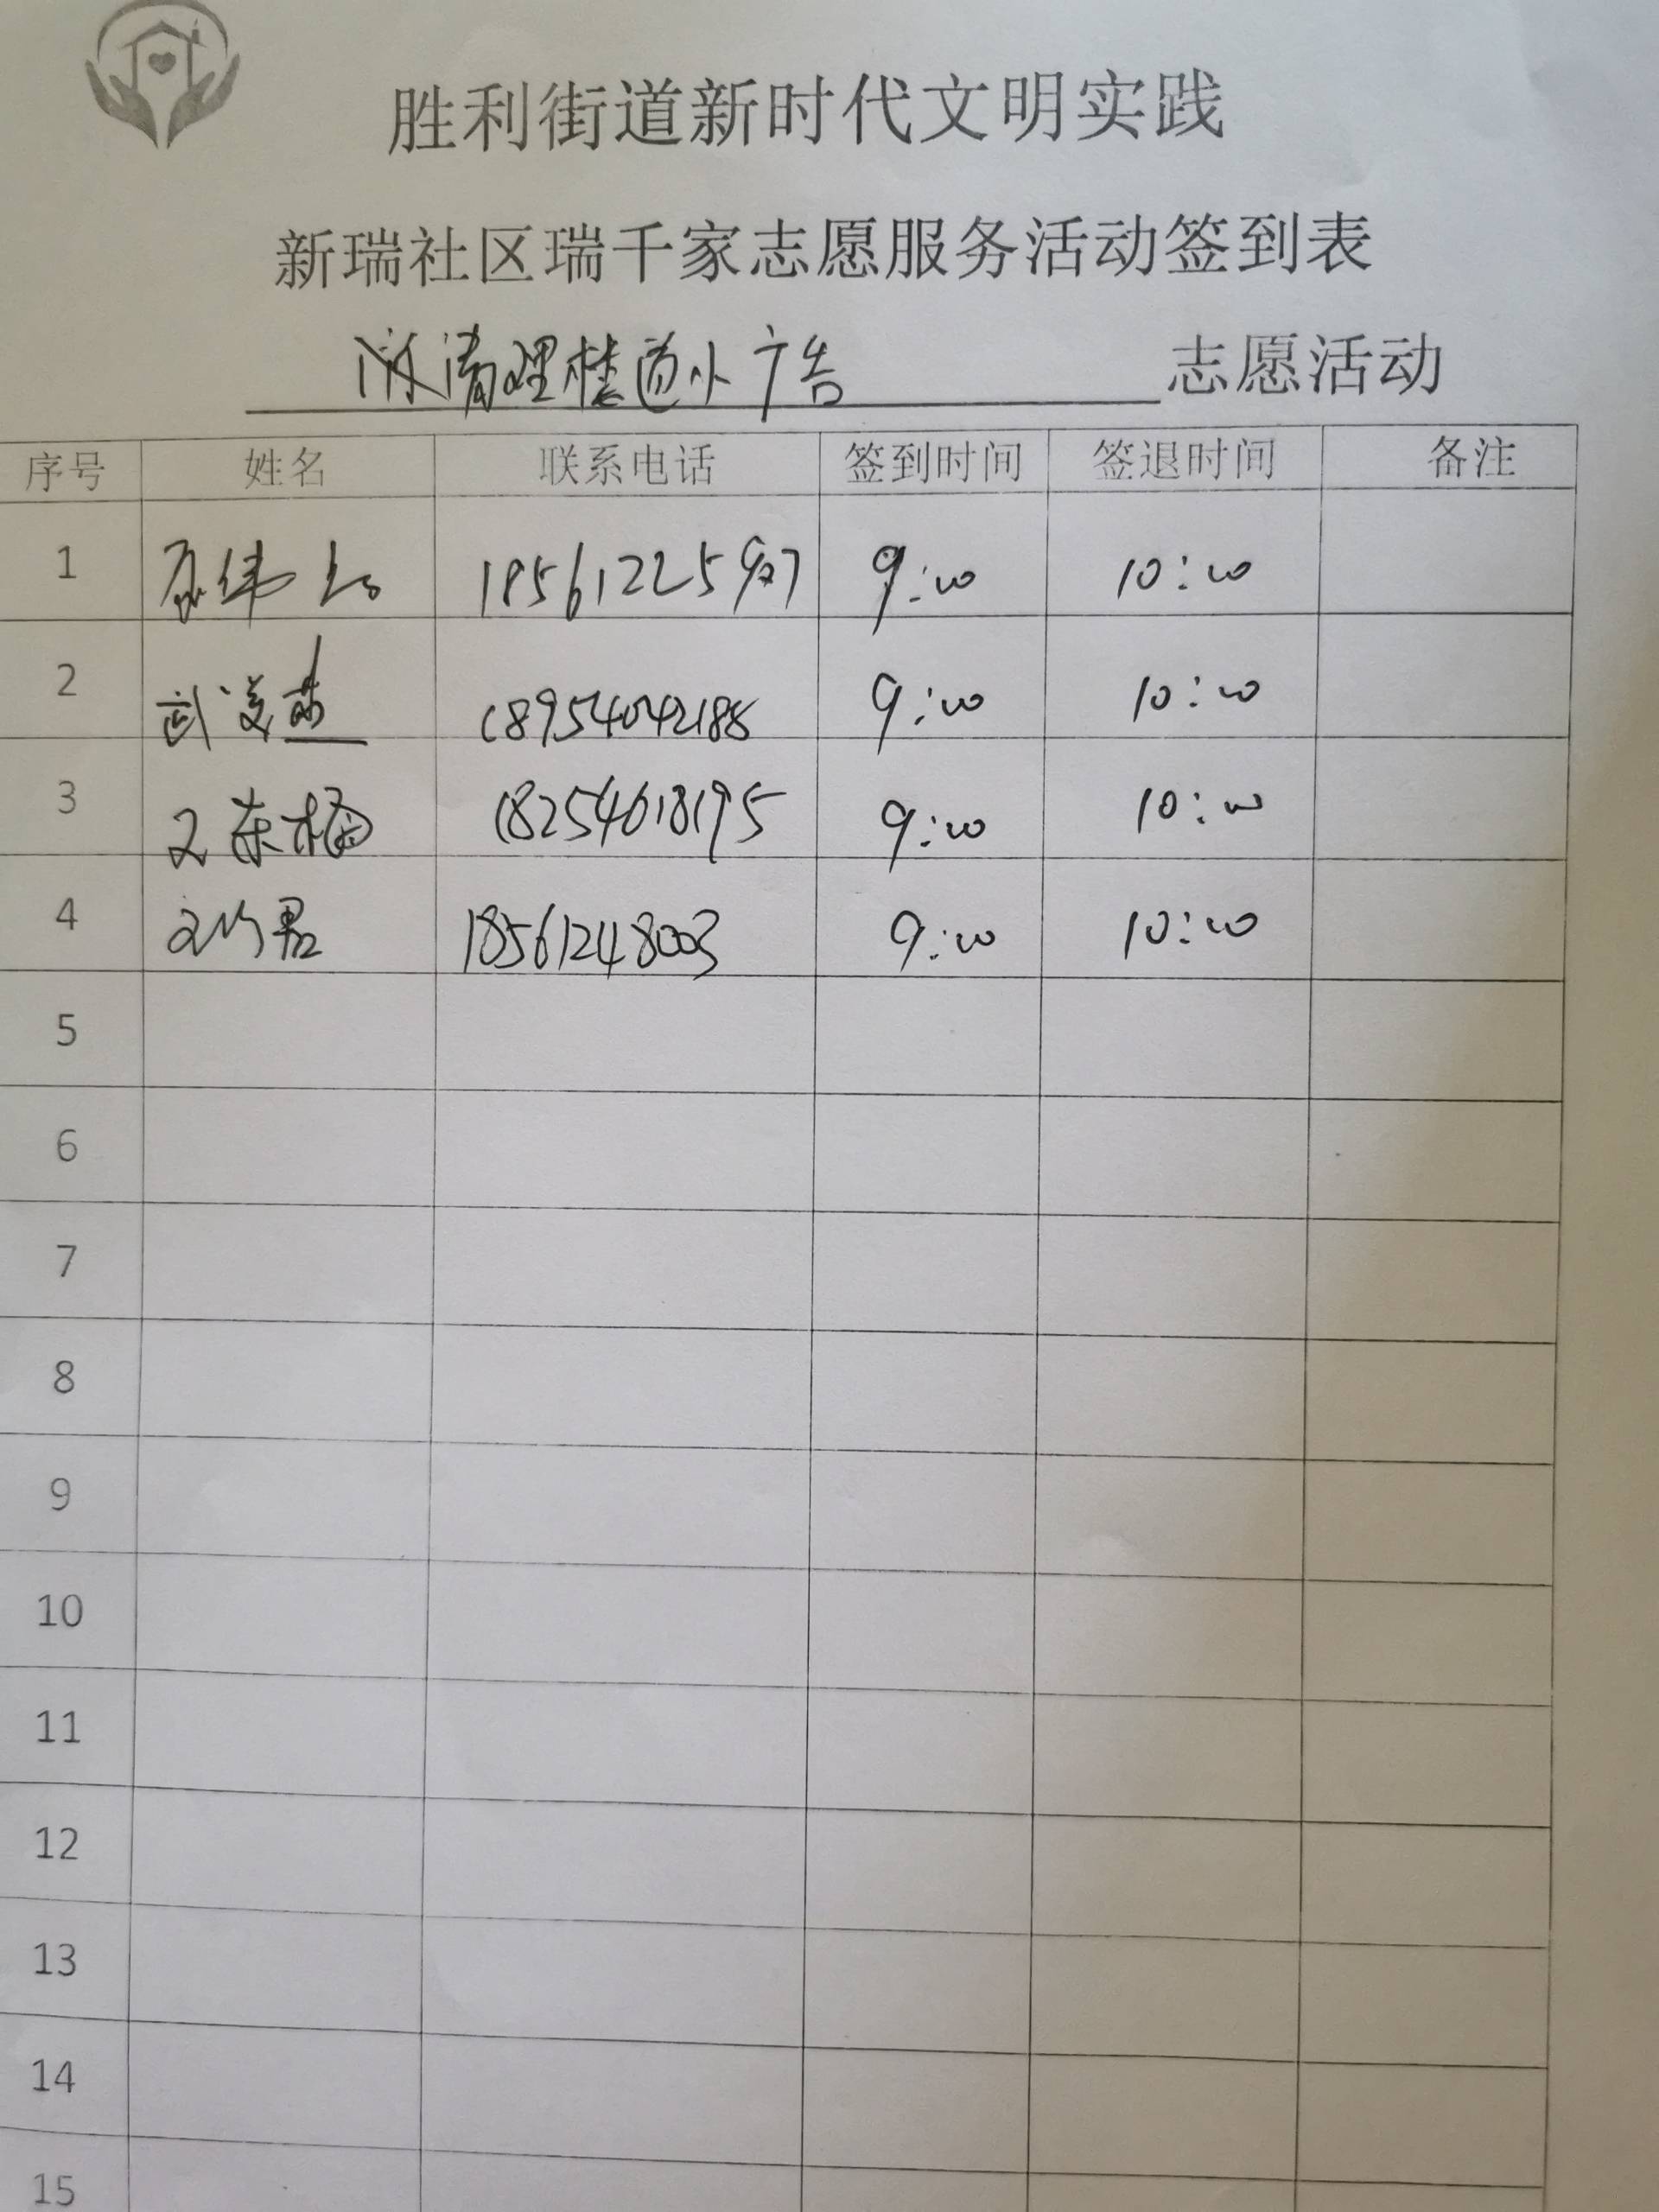 胜利街道新时代文明实践
新瑞社区瑞千家志愿服务活动签到表
清理楼道小广告 志愿活动
序号 姓名 联系电话 签到时间 签退时间 备注
1 9:00 10:00
2 武 18954042188 9:00 10:00
3 18254618195 9:00 10:00
4 18561248003 9:00 10:00
5
6
7
8
9
10
11
12
13
14
15